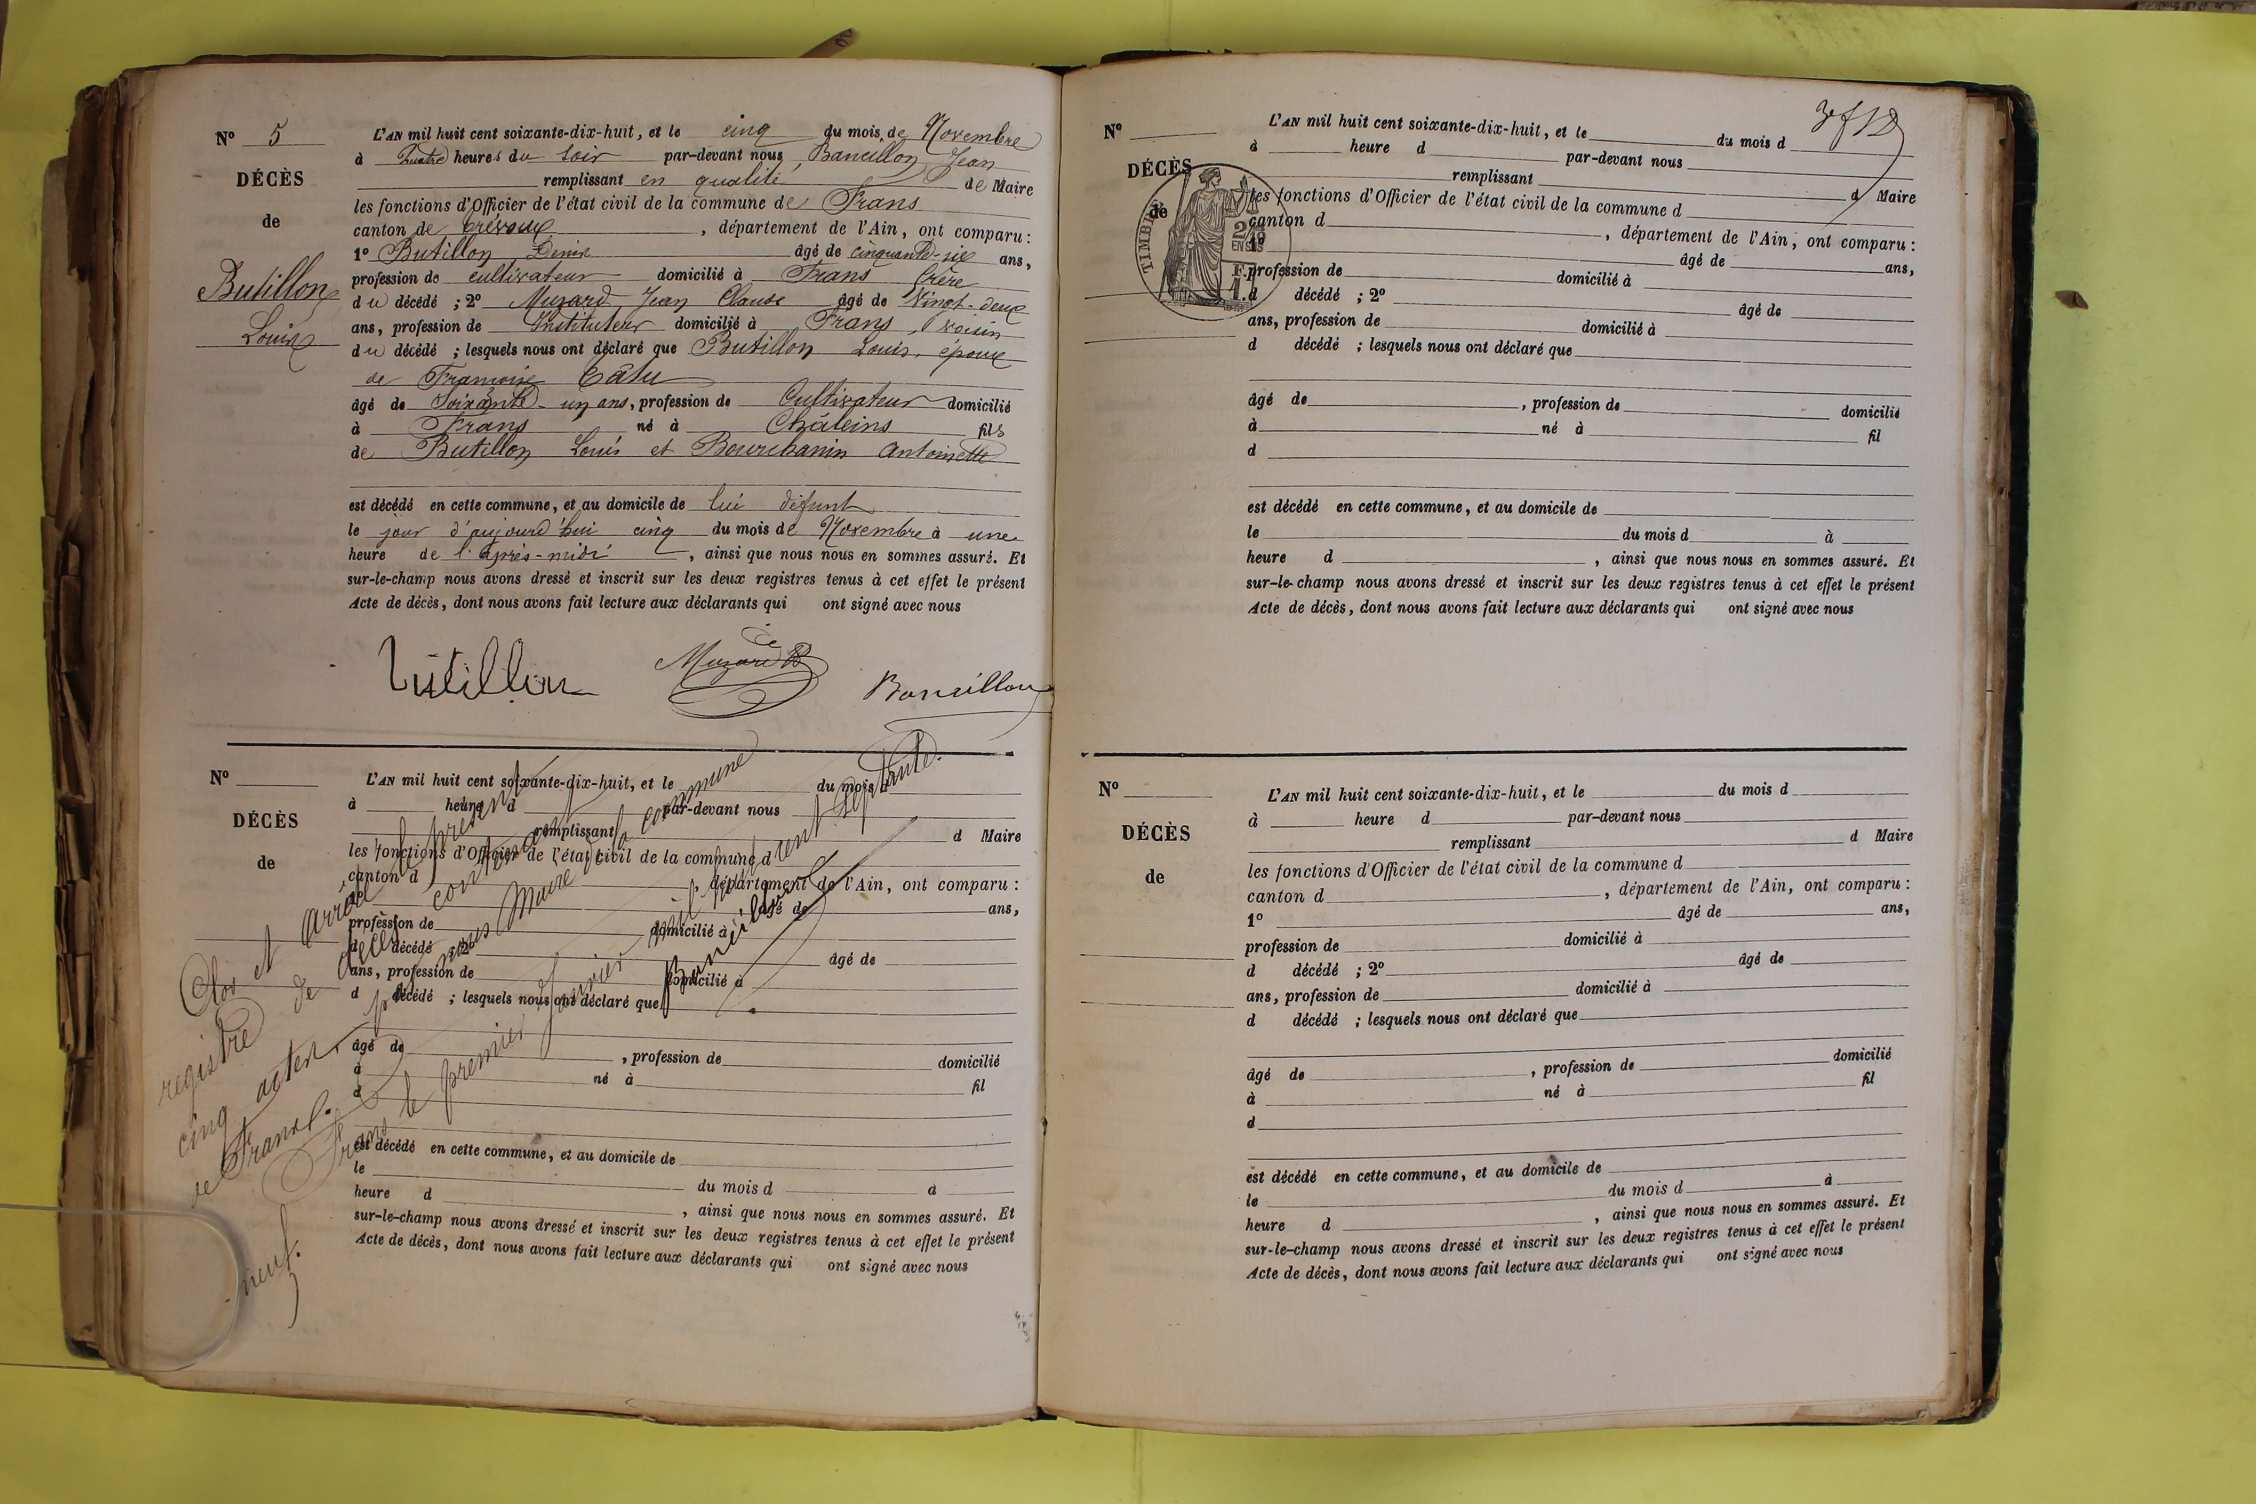 N° 5
DÉCÈS
de
Butillon
Louis
L'AN mil huit cent soixante-dix-huit, et le cinq du mois de Novembre
à quatre heures du soir par-devant nous, Bancillon Jean
remplissant en qualité de Maire
les fonctions d'Officier de l'état civil de la commune de Frans
canton de Trévoux, département de l'Ain, ont comparu :
1° Butillon Denis âgé de cinquante-six ans,
profession de cultivateur domicilié à Frans frère
du décédé ; 2° Muzard, Jean Claude âgé de vingt-deux
ans, profession de Instituteur domicilié à Frans, voisin
du décédé ; lesquels nous ont déclaré que Butillon Louis, époux
de Françoise Câtu
âgé de soixante-un ans, profession de Cultivateur domicilié
à Frans né à Châleins fils
de Butillon Louis et Bourchanin Antoinette
est décédé en cette commune, et au domicile de lui défunt
le jour d'aujourd'hui cinq du mois de Novembre à une
heure de l'après-midi, ainsi que nous nous en sommes assuré. Et
sur-le-champ nous avons dressé et inscrit sur les deux registres tenus à cet effet le présent
Acte de décès, dont nous avons fait lecture aux déclarants qui ont signé avec nous
Butillon Muzard Bancillon
N°
DÉCÈS
de
L'AN mil huit cent soixante-dix-huit, et le du mois d
à heure d par-devant nous
remplissant d Maire
les fonctions d'Officier de l'état civil de la commune d
canton d , département de l'Ain, ont comparu :
1° âgé de ans,
profession de domicilié à
d décédé ; 2° âgé de
ans, profession de domicilié à
d décédé ; lesquels nous ont déclaré que
âgé de , profession de domicilié
à né à fil
d
est décédé en cette commune, et au domicile de
le du mois d à
heure d , ainsi que nous nous en sommes assuré. Et
sur-le-champ nous avons dressé et inscrit sur les deux registres tenus à cet effet le présent
Acte de décès, dont nous avons fait lecture aux déclarants qui ont signé avec nous
Clos et arrêté le présent
registre de décès contenant
cinq actes, par nous Maire de la commune
de Frans.
Frans le premier Janvier mil huit cent septante-
neuf.
Bancillon
3e f
N°
DÉCÈS
de
TIMBRE
2/10
EN SUS
L'AN mil huit cent soixante-dix-huit, et le du mois d
à heure d par-devant nous
remplissant d Maire
les fonctions d'Officier de l'état civil de la commune d
canton d , département de l'Ain, ont comparu :
1° âgé de ans,
profession de domicilié à
d décédé ; 2° âgé de
ans, profession de domicilié à
d décédé ; lesquels nous ont déclaré que
âgé de , profession de domicilié
à né à fil
d
est décédé en cette commune, et au domicile de
le du mois d à
heure d , ainsi que nous nous en sommes assuré. Et
sur-le-champ nous avons dressé et inscrit sur les deux registres tenus à cet effet le présent
Acte de décès, dont nous avons fait lecture aux déclarants qui ont signé avec nous
N°
DÉCÈS
de
L'AN mil huit cent soixante-dix-huit, et le du mois d
à heure d par-devant nous
remplissant d Maire
les fonctions d'Officier de l'état civil de la commune d
canton d , département de l'Ain, ont comparu :
1° âgé de ans,
profession de domicilié à
d décédé ; 2° âgé de
ans, profession de domicilié à
d décédé ; lesquels nous ont déclaré que
âgé de , profession de domicilié
à né à fil
d
est décédé en cette commune, et au domicile de
le du mois d à
heure d , ainsi que nous nous en sommes assuré. Et
sur-le-champ nous avons dressé et inscrit sur les deux registres tenus à cet effet le présent
Acte de décès, dont nous avons fait lecture aux déclarants qui ont signé avec nous